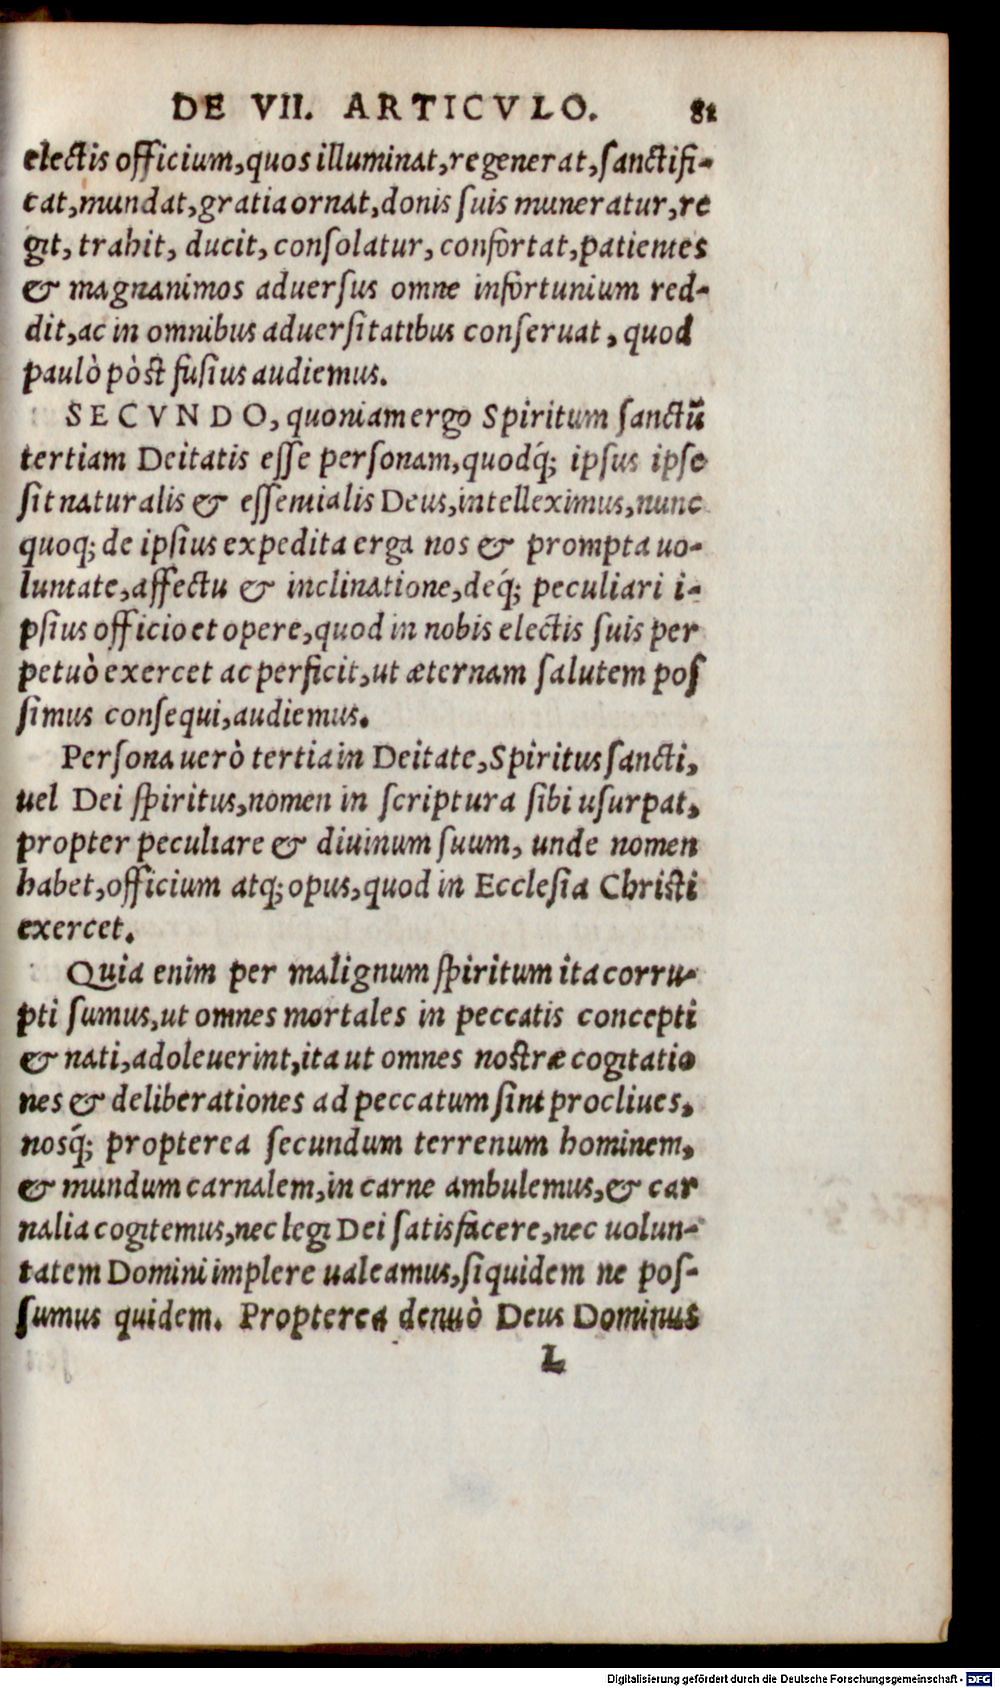 DE VII. ARTICVLO. 81
electis officium,quos illuminat,regenerat,sanctifi-
cat,mundat,gratia ornat,donis suis muneratur,re
git, trahit, ducit, consolatur, confortat,patientes
& magnanimos aduersus omne infortunium red-
dit,ac in omnibus aduersitatibus conseruat, quod
paulò pòst fusius audiemus.
SECVNDO, quoniam ergo Spiritum sanctũ
tertiam Deitatis esse personam,quodq́; ipsus ipse
sit naturalis & essentialis Deus,intelleximus,nunc
quoq; de ipsius expedita erga nos & prompta uo-
luntate,affectu & inclinatione,deq́; peculiari i-
psius officio et opere,quod in nobis electis suis per
petuò exercet ac perficit,ut æternam salutem pos
simus consequi,audiemus.
Persona uerò tertia in Deitate,Spiritus sancti,
uel Dei spiritus,nomen in scriptura sibi usurpat,
propter peculiare & diuinum suum, unde nomen
habet,officium atq; opus,quod in Ecclesia Christi
exercet.
Quia enim per malignum spiritum ita corru-
pti sumus,ut omnes mortales in peccatis concepti
& nati,adoleuerint,ita ut omnes nostræ cogitatio
nes & deliberationes ad peccatum sint procliues,
nosq́; propterea secundum terrenum hominem,
& mundum carnalem,in carne ambulemus,& car
nalia cogitemus,nec legi Dei satisfacere,nec uolun-
tatem Domini implere ualeamus,siquidem ne pos-
sumus quidem. Propterea denuò Deus Dominus
L
Digitalisierung gefördert durch die Deutsche Forschungsgemeinschaft - DFG